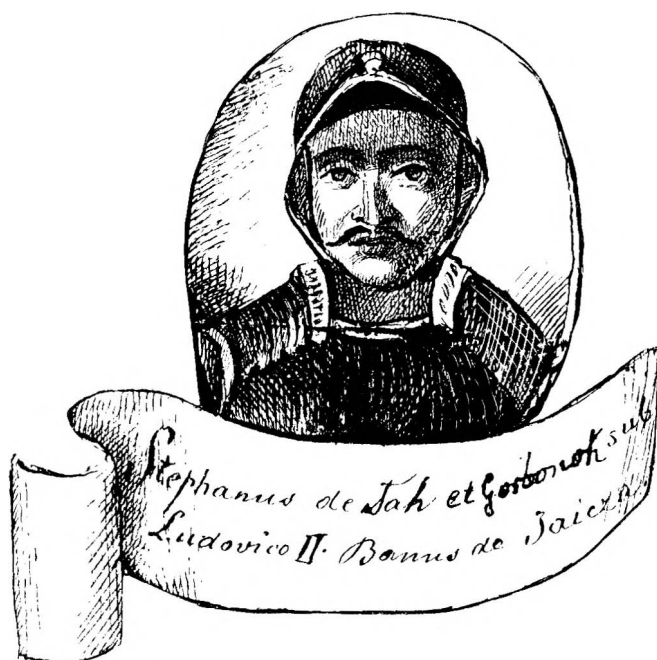 Stephanus de Tah et Gorbonok sub
Ludovico II. Banus de Jaicza